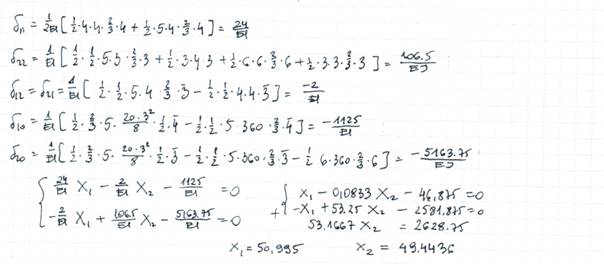 δ₁₁ = 1/2EI [ 1/2·4·4·2/3·4 + 1/2·5·4·2/3·4 ] = 24/EI
δ₂₂ = 1/EI [ 1/2·1/2·5·3·2/3·3 + 1/2·3·4·3 + 1/2·6·6·2/3·6 + 1/2·3·3·2/3·3 ] = 106.5/EJ
δ₁₂ = δ₂₁ = 1/EI [ 1/2·1/2·5·4·2/3·3 − 1/2·1/2·4·4·3 ] = −2/EI
δ₁₀ = 1/EI [ 1/2·2/3·5·20·3²/8·1/2·4 − 1/2·1/2·5·360·2/3·4 ] = −1125/EI
δ₂₀ = 1/EI [ 1/2·2/3·5·20·3²/8·1/2·3 − 1/2·1/2·5·360·2/3·3 − 1/2·6·360·2/3·6 ] = −5163.75/EJ
{ 24/EI X₁ − 2/EI X₂ − 1125/EI = 0
−2/EI X₁ + 106.5/EI X₂ − 5163.75/EI = 0
+ { X₁ − 0,0833 X₂ − 46,875 = 0
−X₁ + 53.25 X₂ − 2581,875 = 0
53.1667 X₂ = 2628.75
X₁ = 50,995 X₂ = 49.4436